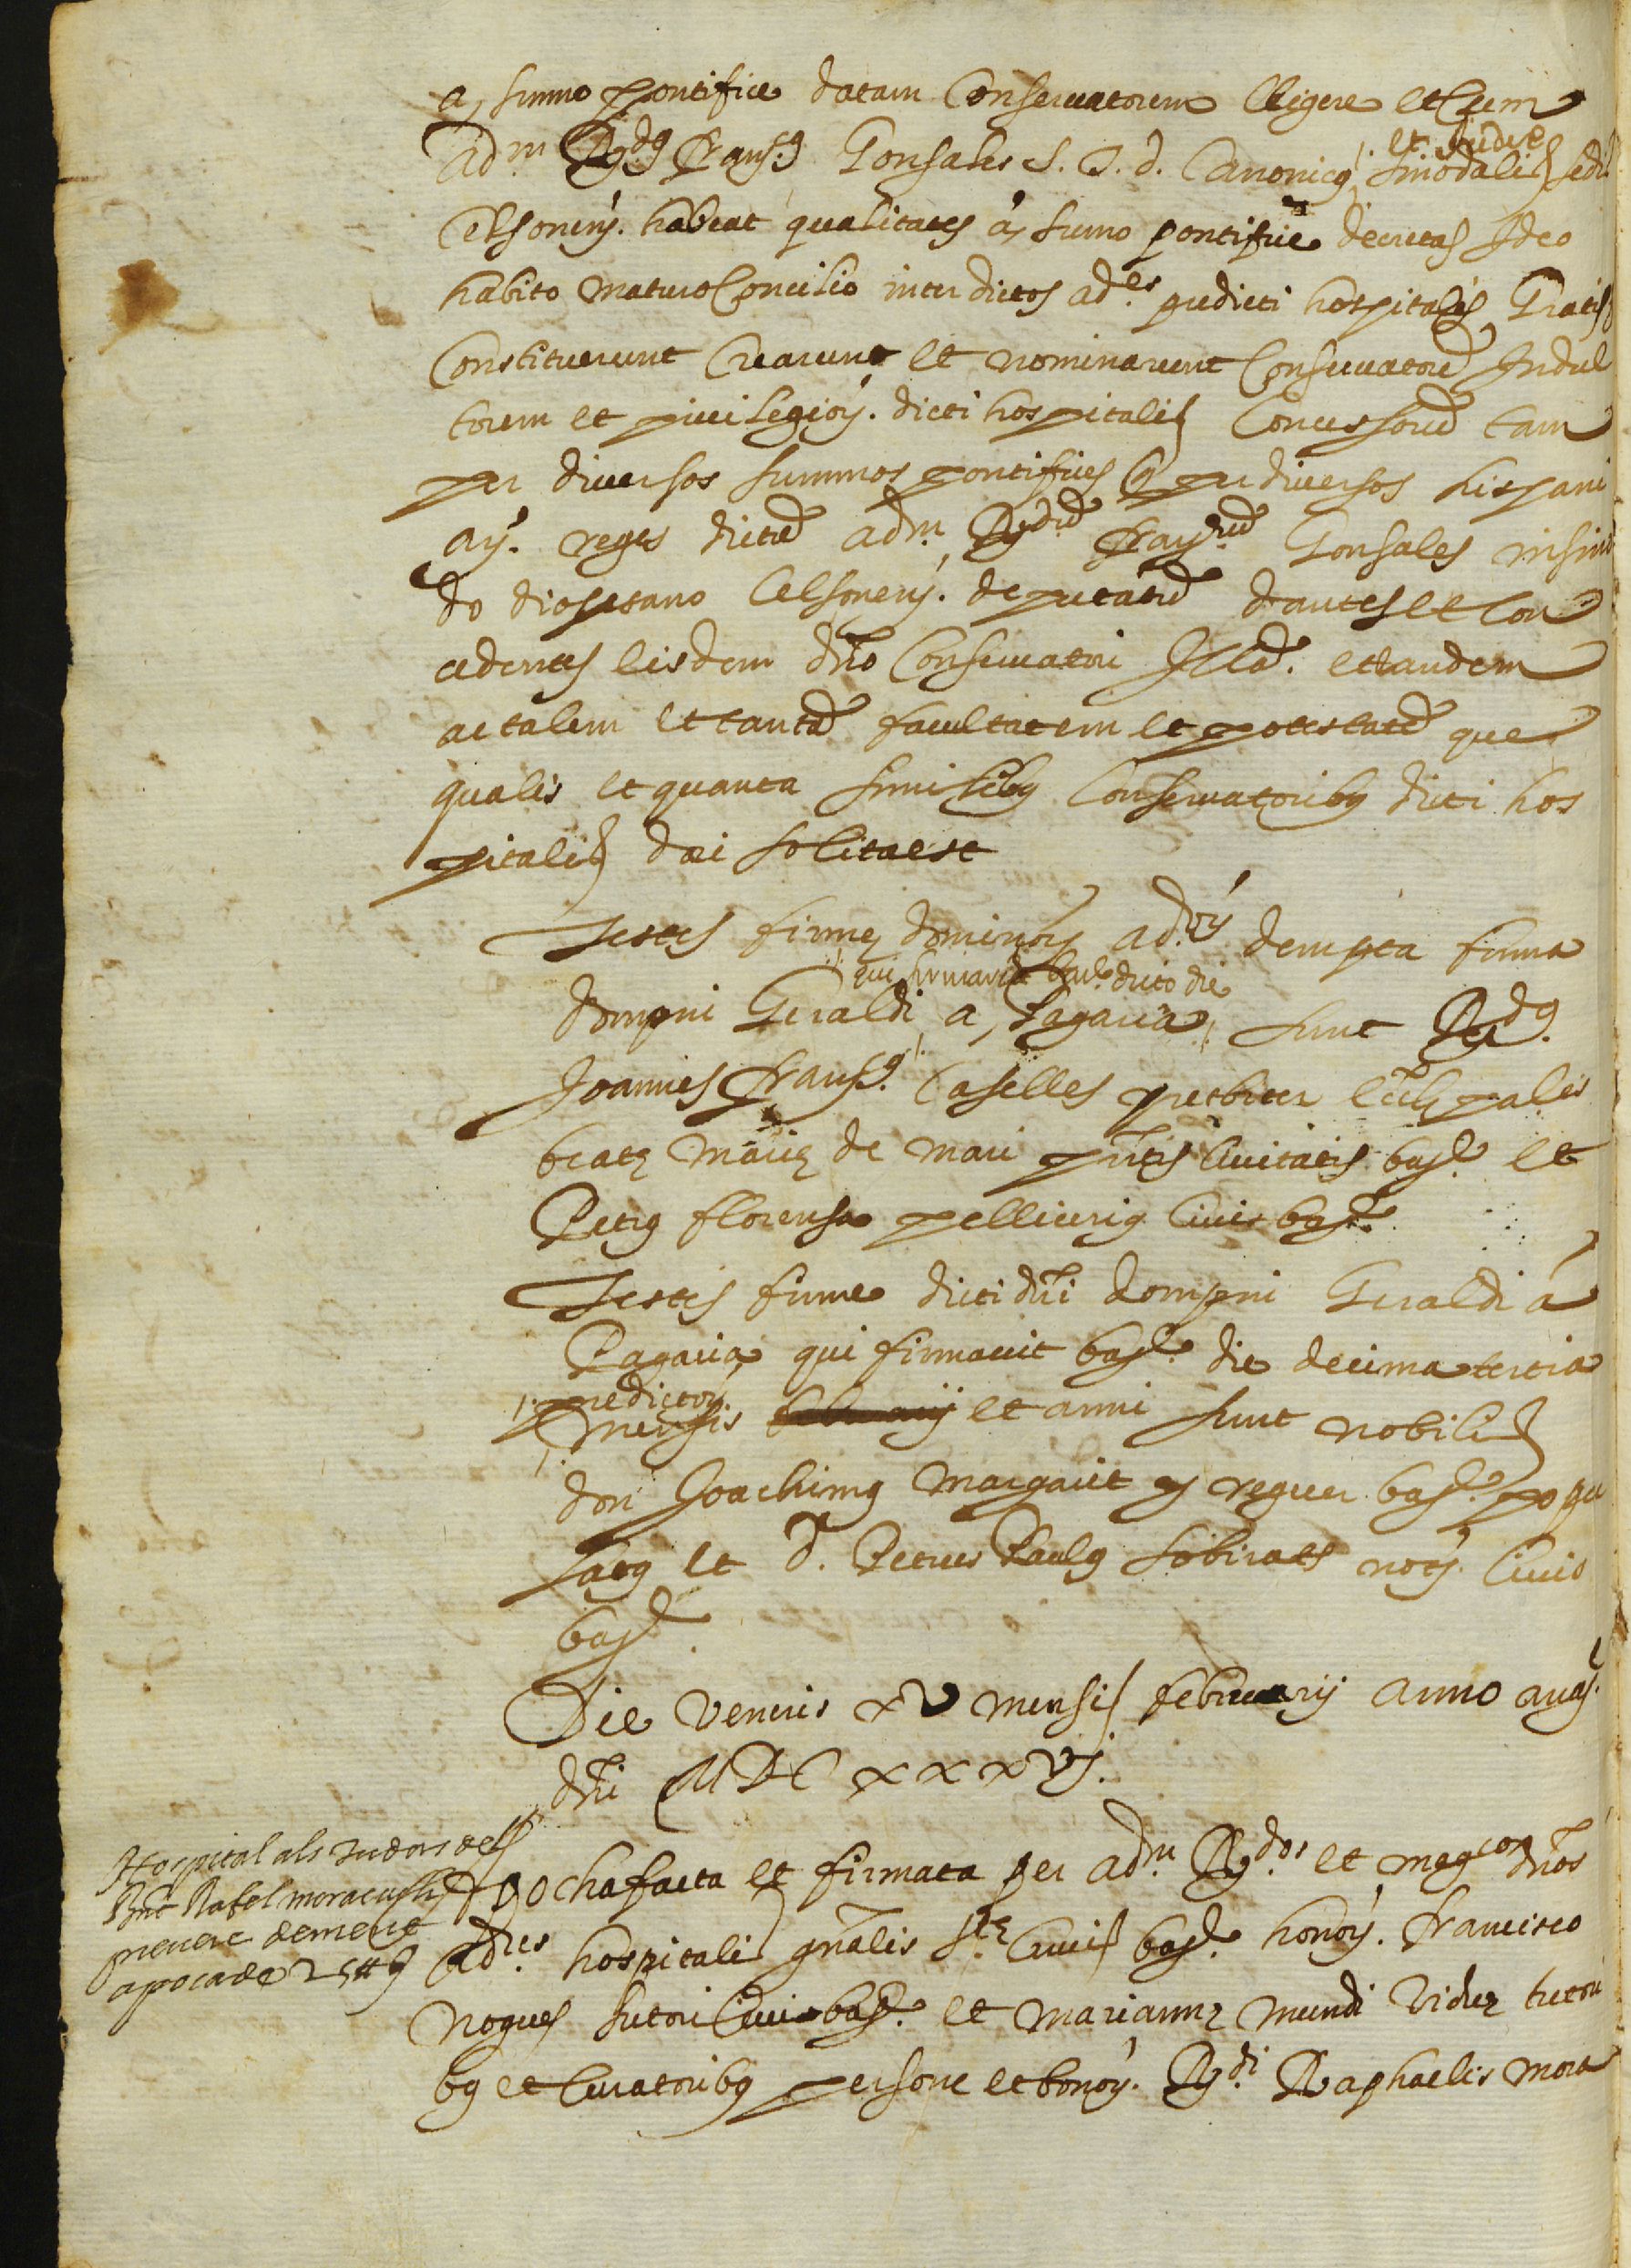 a, sumo pontifice datam Conservatorem eligere et Cum
adm. Rdus. Fransus. Gonsales S. T. d. Canonicus et Judex sinodalis sedis
Celsonen. habeat qualitates á, sumo pontifice decretas Ideo
habito maturo Concilio inter dictos ades. predicti hospitalis Gratis
Constituerunt Crearunt et nominarunt Conservatorem Indul
torem et privilegior. dicti hospitalis Concessorum tam
per diversos summos pontifices q. per diversos hispani
ar. reges dictum adm. Rdum. Franscum Gonsales in sino
do diosesano Celsonen. deputatum dantes et con
cedentes eisdem dño Conservatori Illam. et eandem
ac talem et tantam facultatem et potestatem que
qualis et quanta similibus Conservatoribus dicti hos
pitalis dari solita est
Testes firmę dominor. ador. dempta firma
qui firmavit dicto die
dompni Geraldi a, Pagaria, sunt Rdus.
Joannes Fransus. Caselles prebiter
beatę Marię de mari pntis Civitatis barne. et
Petrus florensa pellicerius Civis barne.
Testes firme dicti dñi dompni Geraldi á
Pagaria qui firmavit barne. die decima tertia
predictor.
mensis februarij et anni sunt nobilis
don Joachimus Margarit et reguer barne. popu
latus et d. Petrus Paulus sobirats nots. Civis
barne.
Die Veneris xv mensis februarij anno a nat.
dñi MDCxxxvj.
Hospital als tudors del
Rnt Rafel mora
prevere dement
apoca de
Apocha facta et firmata per adm. Rdos. et magcos dños
adres. hospitalis gñalis stę Crucis barne. honor. Francisco
Nogues sutori Civi barne. et mariannę mundi viduę tutori
bus et Curatoribus persone et bonor. Rdi. Raphaelis mora